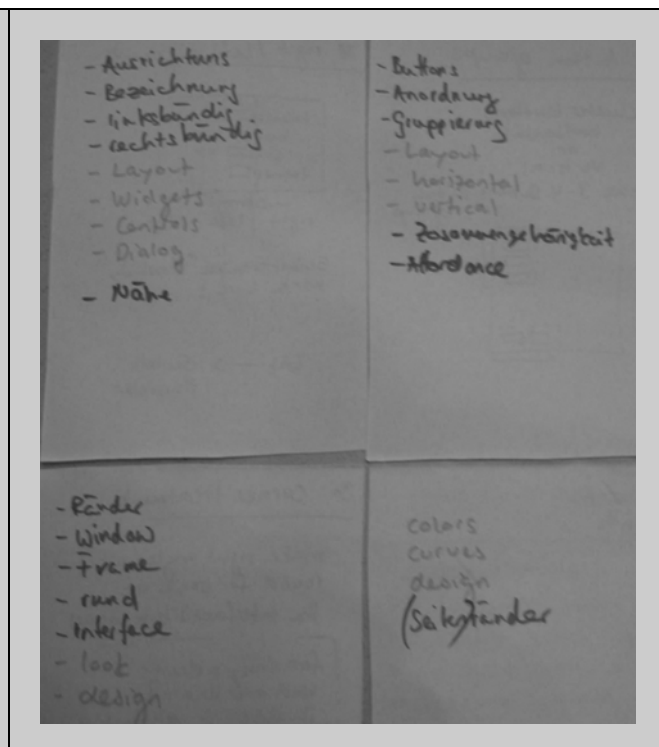 - Ausrichtung
- Bezeichnung
- linksbündig
- rechtsbündig
- Layout
- Widgets
- Controls
- Dialog
- Nähe
- Buttons
- Anordnung
- Gruppierung
- Layout
- horizontal
- vertical
- Zusammengehörigkeit
- Afordance
- Ränder
- Window
- Frame
- rund
- Interface
- look
- design
colors
curves
design
(Seiten)ränder